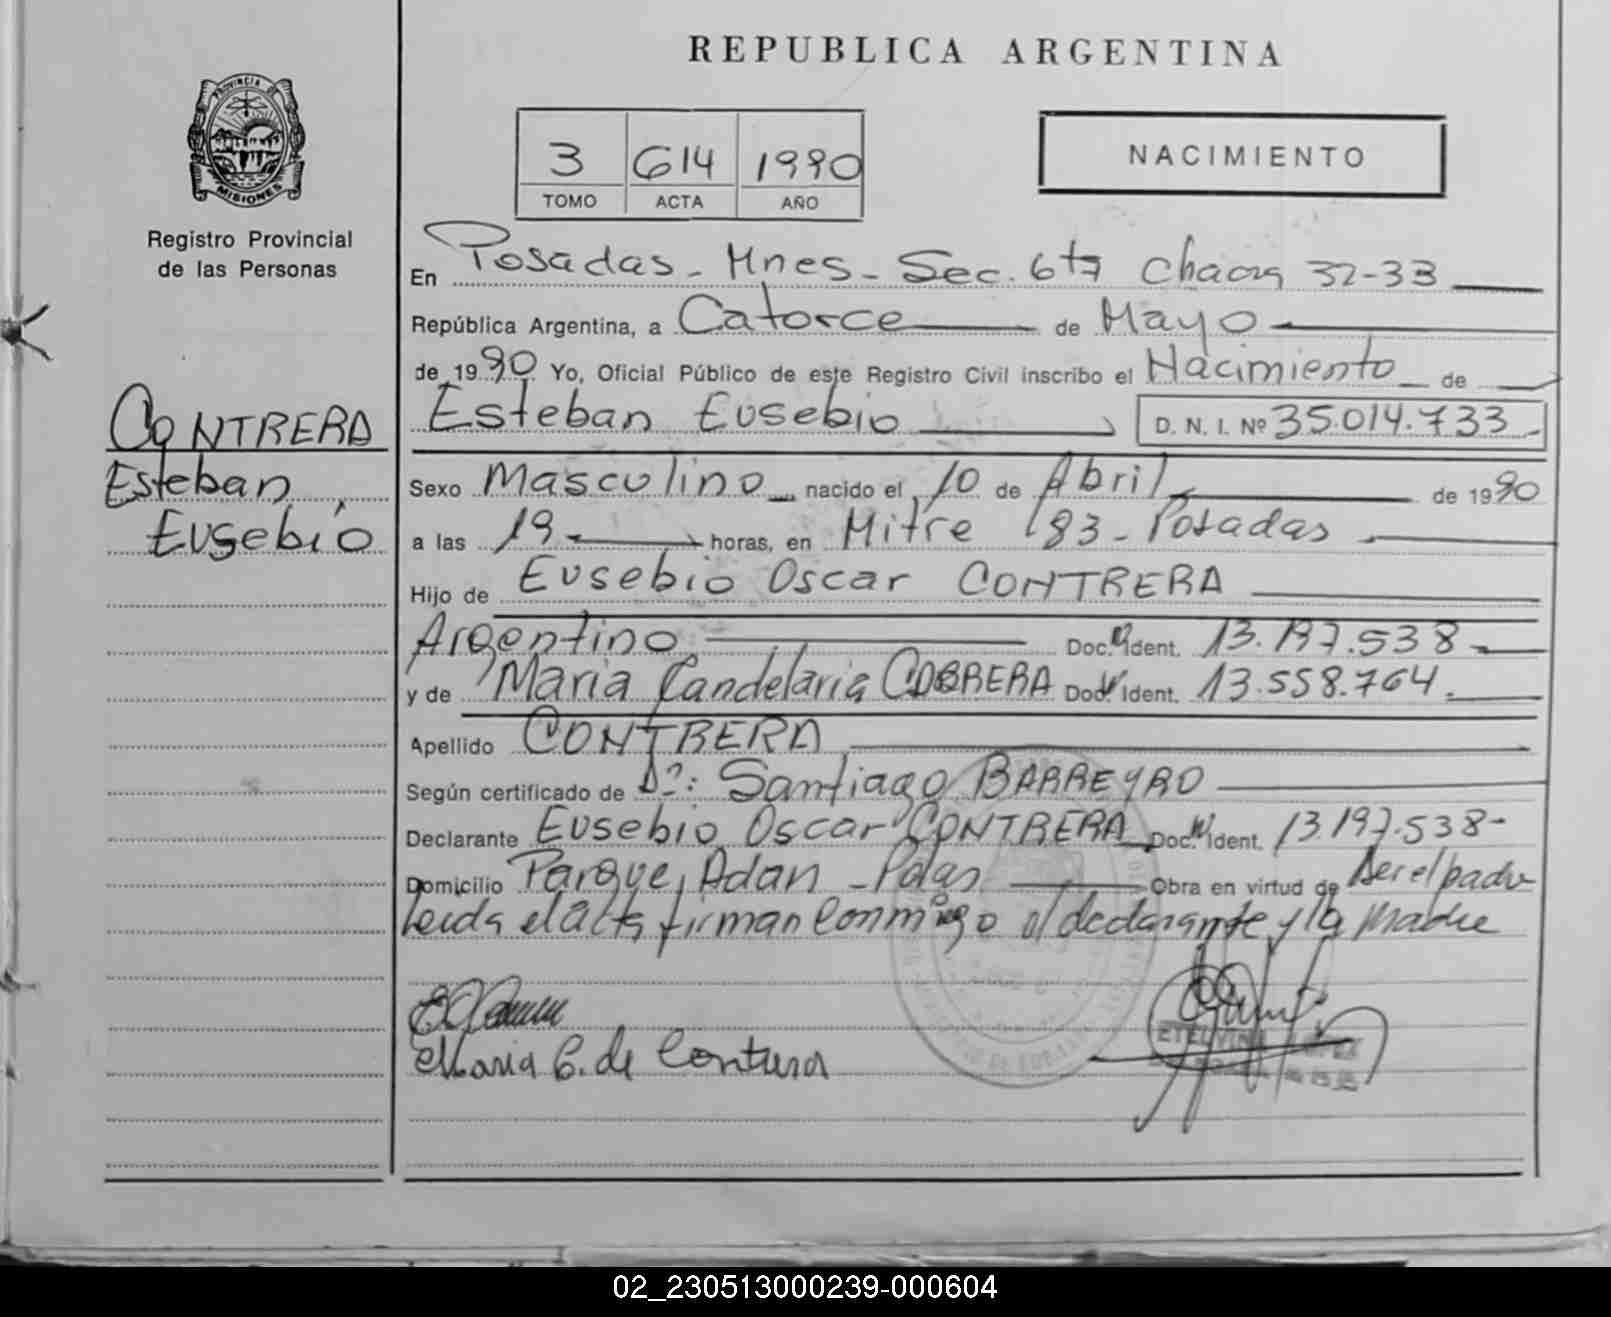 REPUBLICA ARGENTINA
PROVINCIA DE
MISIONES
Registro Provincial
de las Personas
3 614 1990
TOMO ACTA AÑO
NACIMIENTO
En Posadas - Mnes - Sec. 6ta Chacra 32-33
República Argentina, a Catorce de Mayo
de 1990 Yo, Oficial Público de este Registro Civil inscribo el Nacimiento de
Esteban Eusebio D. N. I. Nº 35.014.733
CONTRERA
Esteban
Eusebio
Sexo Masculino nacido el 10 de Abril de 1990
a las 19 horas, en Mitre 183 - Posadas
Hijo de Eusebio Oscar CONTRERA
Argentino Doc. Ident. 13.197.538
y de Maria Candelaria CABRERA Doc. Ident. 13.558.764
Apellido CONTRERA
Según certificado de Dr: Santiago BARREYRO
Declarante Eusebio Oscar CONTRERA Doc. Ident. 13.197.538-
Domicilio Parque Adan - Pdas Obra en virtud de Ser el padre
Leida el acta firman conmigo el declarante y la madre
Maria C. de Contrera
ETELVINA LOPEZ
02_230513000239-000604